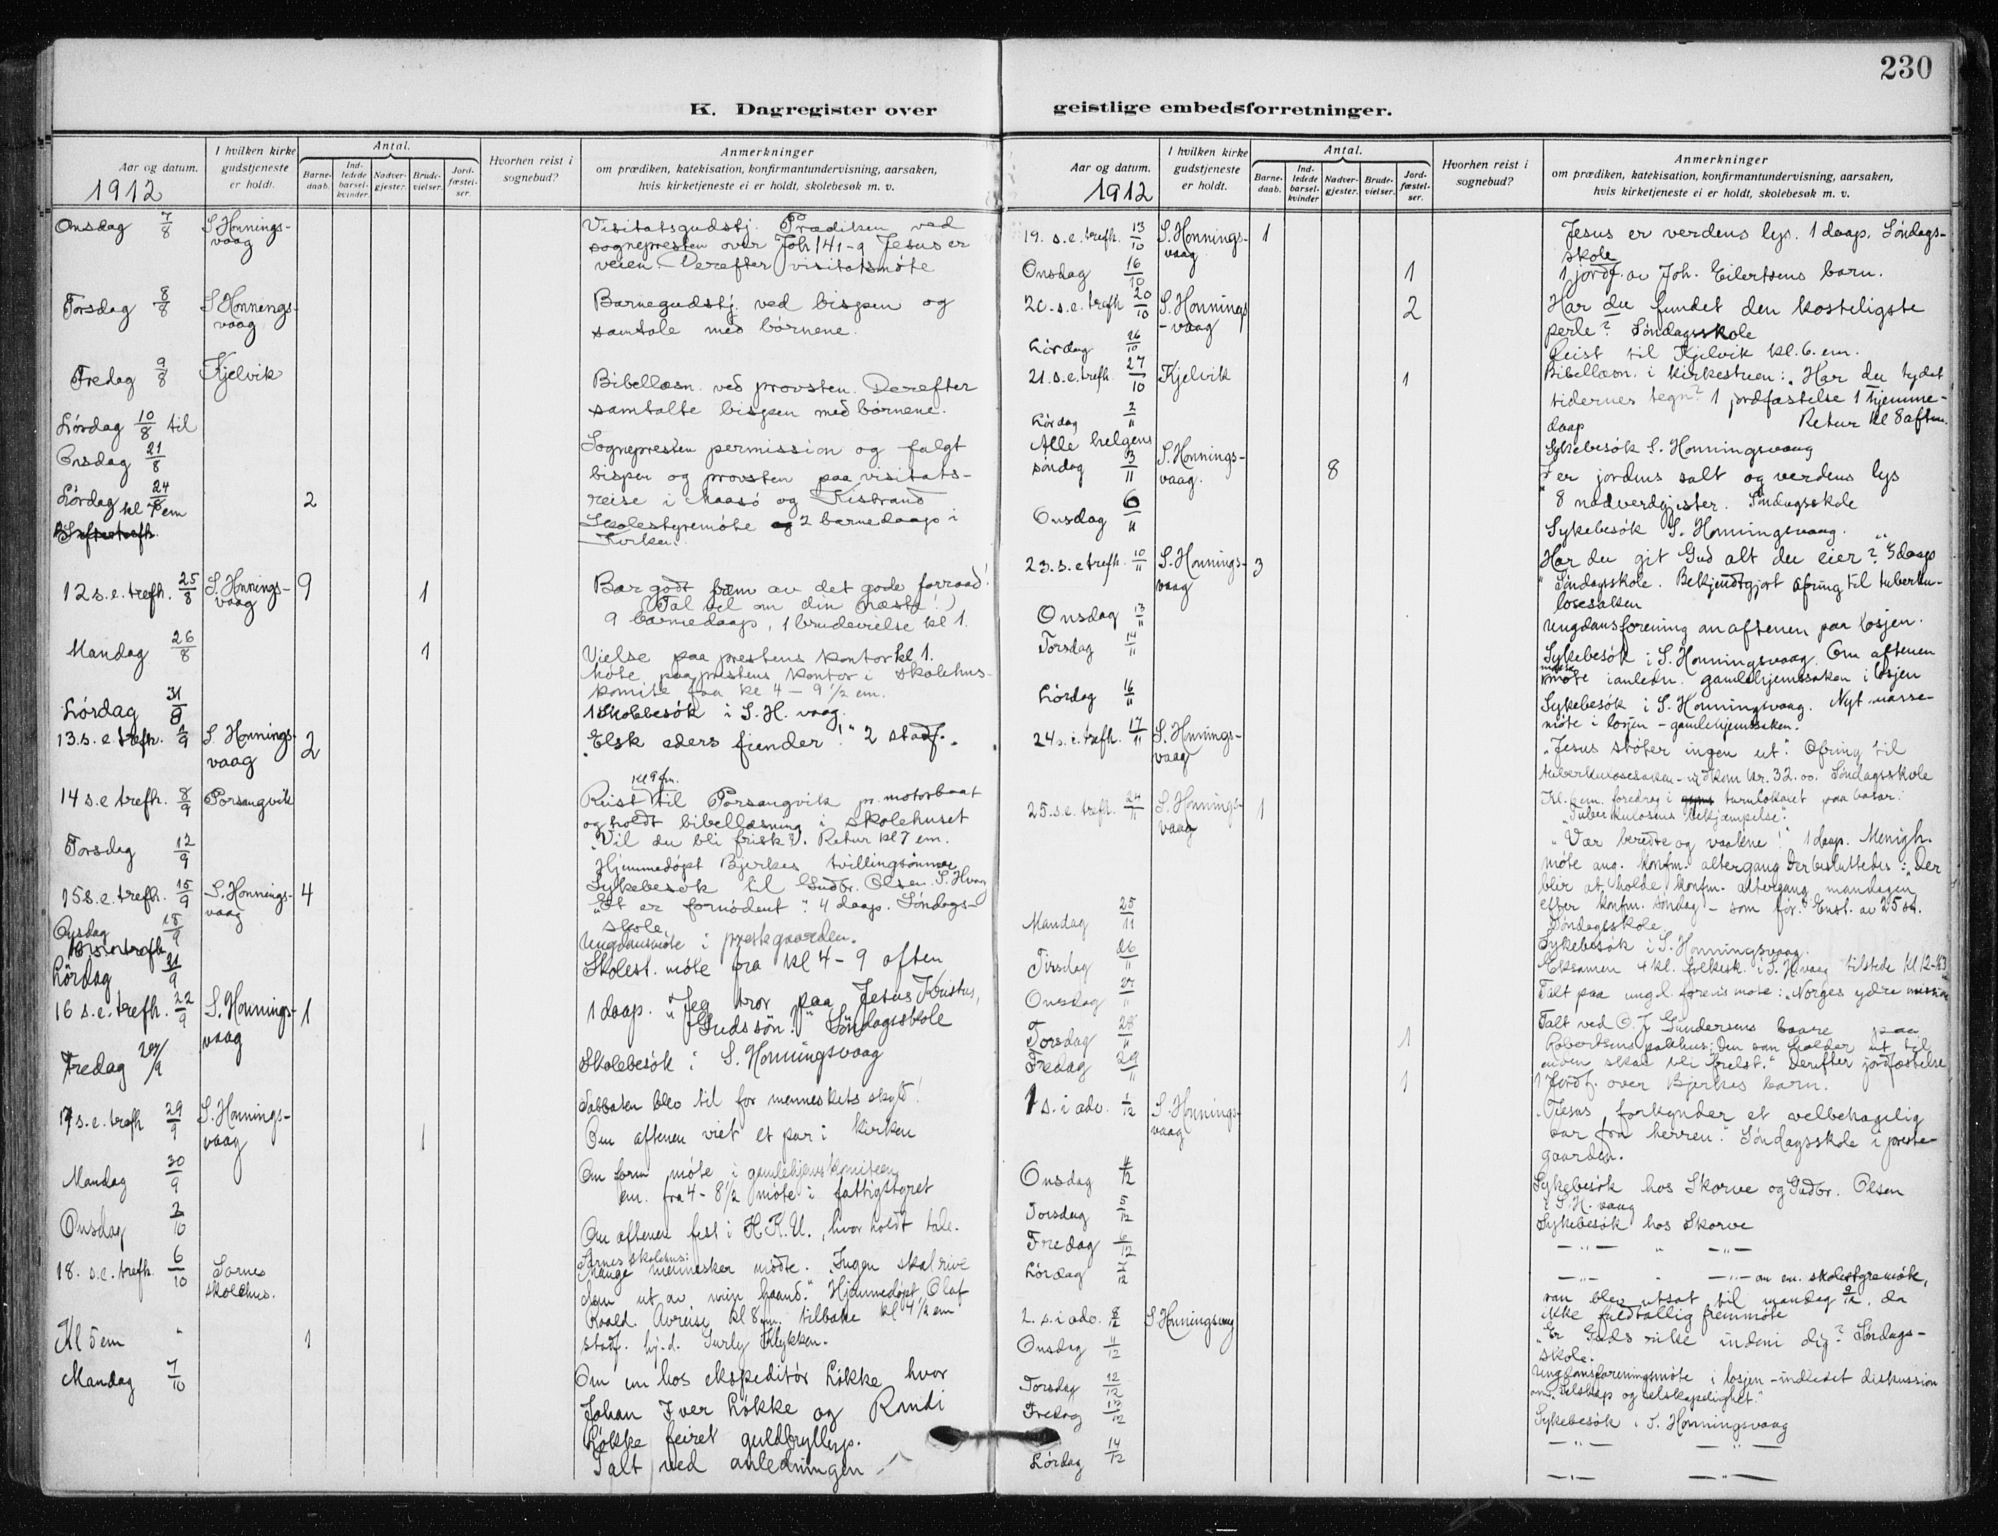 230
K. Dagregister over geistlige embedsforretninger.
Aar og datum.
1912
I hvilken kirke gudstjeneste er holdt.
Antal.
Barne-daab.
Ind-ledede barsel-kvinder.
Nadver-gjester.
Brude-vielser.
Jord-fæstel-ser.
Hvorhen reist i sognebud?
Anmerkninger
om prædiken, katekisation, konfirmantundervisning, aarsaken,
hvis kirketjeneste ei er holdt, skolebesøk m. v.
Onsdag 7/8 S. Honnings-vaag
Visitatsgudstj. Prædiken ved
sognepresten over Joh 14 1-9 Jesus er
veien. Derefter visitatsmøte
Torsdag 8/8 S. Honnings-vaag
Barnegudstj. ved bispen og
samtale med børnene.
Fredag 9/8 Kjelvik
Bibellæsn. ved provsten. Derefter
samtalte bispen med børnene.
Lørdag 10/8 til
Onsdag 21/8
Sognepresten permission og fulgt
bispen og provsten paa visitats-
reise i Maasø og Kistrand
Lørdag 24/8 kl 7 em 2
Skolestyremøte og 2 barnedaap i
Kirken.
12 s.e. trefh. 25/8 S. Honnings-vaag 9 1
Bær godt frem av det gode forraad!
(Tal vel om din næste!)
9 barnedaap, 1 brudevielse kl 1.
Mandag 26/8 1
Vielse paa prestens kontor kl 1.
Møte paa prestens kontor i skolehus-
komite fra kl 4 - 9 1/2 em.
Lørdag 31/8
1 Skolebesøk i S. H. vaag.
13. s. e. trefh. 1/9 S. Honnings-vaag 2
"Elsk eders fiender!" 2 stadf.
14 s.e. trefh. 8/9 Porsangvik
kl 9 fm.
Reist til Porsangvik pr. motorbaat
og holdt bibellæsning i skolehuset
"Vil du bli frisk?". Retur kl 7 em.
Torsdag 12/9
Hjemmedøpt Bjerkes tvillingsønner
Sykebesøk til Gudbr. Olsen. S. Hvaag
15 s.e. trefh. 15/9 S. Honnings-vaag 4
"Et er fornødent". 4 daap. Søndags-
skole.
Onsdag 18/9
Ungdomsmøte i prestegaarden.
Lørdag 21/9
Skolest. møte fra kl 4 - 9 aften
16 s.e. trefh. 22/9 S. Honnings-vaag 1
1 daap. "Jeg tror paa Jesus Kristus,
Guds søn." Søndagsskole
Fredag 27/9
Skolebesøk i S. Honningsvaag
17 s.e. trefh 29/9 S. Honnings-vaag 1
Sabbaten blev til for menneskets skyld!
Om aftenen viet et par i kirken
Mandag 30/9
Om form møte i gamlehjemskomiteen
em. fra 4 - 8 1/2 møte i fattigstyret
Onsdag 2/10
Om aftenen fest i H. K. U., hvor holdt tale.
18. s.e. trefh. 6/10 Sarnes skolehus.
Sarnes skolehus:
Mange mennesker mødte. "Ingen skal rive
dem ut av min haand." Hjemmedøpt Olaf
Roald. Avreise kl 8 fm. tilbake kl 4 1/2 em
Kl 5 em " 1
stadf. hj.d. Surly Klykken.
Mandag 7/10
Om em hos ekspeditør Løkke, hvor
Johan Iver Løkke og Randi
Løkke feiret guldbryllup.
Talt ved anledningen
Aar og datum.
1912
I hvilken kirke gudstjeneste er holdt.
Antal.
Barne-daab.
Ind-ledede barsel-kvinder
Nadver-gjester.
Brude-vielser.
Jord-fæstel-ser.
Hvorhen reist i sognebud?
Anmerkninger
om prædiken, katekisation, konfirmantundervisning, aarsaken,
hvis kirketjeneste ei er holdt, skolebesøk m. v.
19. s. e. trefh. 13/10 S. Honnings-vaag 1
Jesus er verdens lys. 1 daap. Søndags-
skole
Onsdag 16/10 1
1 jordf. av Joh. Eilertsens barn.
20. s. e. trefh 20/10 S. Honnings-vaag 2
Har du fundet den kosteligste
perle? Søndagsskole
Lørdag 26/10
Reist til Kjelvik kl. 6. em.
21. s. e. trefh. 27/10 Kjelvik 1
Bibellæsn. i kirkestuen: "Har du tydet
tidernes tegn?" 1 jordfæstelse 1 hjemme-
daap Retur kl 8 aften.
Lørdag 2/11
Sykebesøk S. Honningsvaag
Alle helgens søndag 3/11 S. Honnings-vaag. 8
I er jordens salt og verdens lys
8 nadverdgjester. Søndagsskole
Onsdag 6/11
Sykebesøk S. Honningsvaag.
23. s. e trefh. 10/11 S. Honnings-vaag 3
Har du git Gud alt du eier? 3 daap
Søndagsskole. Bekjendtgjort ofring til tuberku-
losesaken
Onsdag 13/11
Ungdomsforening om aftenen paa losjen.
Torsdag 14/11
Sykebesøk i S. Honningsvaag. Om aftenen
møte i anledn. gamlehjemssaken i losjen
Lørdag 16/11
Sykebesøk i S. Honningsvaag. Nyt masse-
møte i losjen - gamlehjemssaken.
24 s. e. trefh. 17/11 S. Honnings-vaag
"Jesus støter ingen ut". Ofring til
tuberkulosesaken - indkom kr. 32.00. Søndagsskole
Kl. 6 em. foredrag i turnlokalet paa basar:
"Tuberkulosens bekjæmpelse".
25. s. e. trefh. 24/11 S. Honnings-vaag 1
"Vær beredte og vaakne!" 1 daap. Menigh.
møte ang. konfm. altergang. Der besluttedes: "Der
blir at holde konfm. altergang mandagen
efter konfm. søndag - som før." Enst. av 25 st.
Søndagsskole
Mandag 25/11
Sykebesøk i S. Honningsvaag.
Tirsdag 26/11
Eksamen 4 kl. folkesk. i S. H.vaag tilstede kl 12-3
Onsdag 27/11
Talt paa ungd. forenis møte: "Norges ydre mission
Torsdag 28/11 1
Talt ved O. J. Gundersens baare paa
Robertsens pakhus: Den som holder ut til
enden skal bli frelst." Derefter jordfæstelse
Fredag 29/11 1
1 Jordf. over Bjerkes barn.
1 s. i adv. 1/12 S. Honnings-vaag
"Jesus forkynder et velbehagelig
aar fra herren." Søndagsskole i preste-
gaarden.
Onsdag 4/12
Sykebesøk hos Skorve og Gudbr. Olsen
i S. H. vaag
Torsdag 5/12
Sykebesøk hos Skorve
Fredag 6/12
—"— " —"—
Lørdag 7/12
—"— " —"— om em. skolestyremøte,
som blev utsat til mandag 9/12, da
ikke fuldtallig fremmøte
2. s. i adv. 8/12 S Honningsvaag
"Er Guds rike inden i dig? Søndags-
skole.
Onsdag 11/12
Ungdomsforeningsmøte i losjen - indledet diskussion
om "selskap og selskapelighet".
Torsdag 12/12
Sykebesøk i S. Honningsvaag
Fredag 13/12
—"— —"—
Lørdag 14/12
—"— —"—